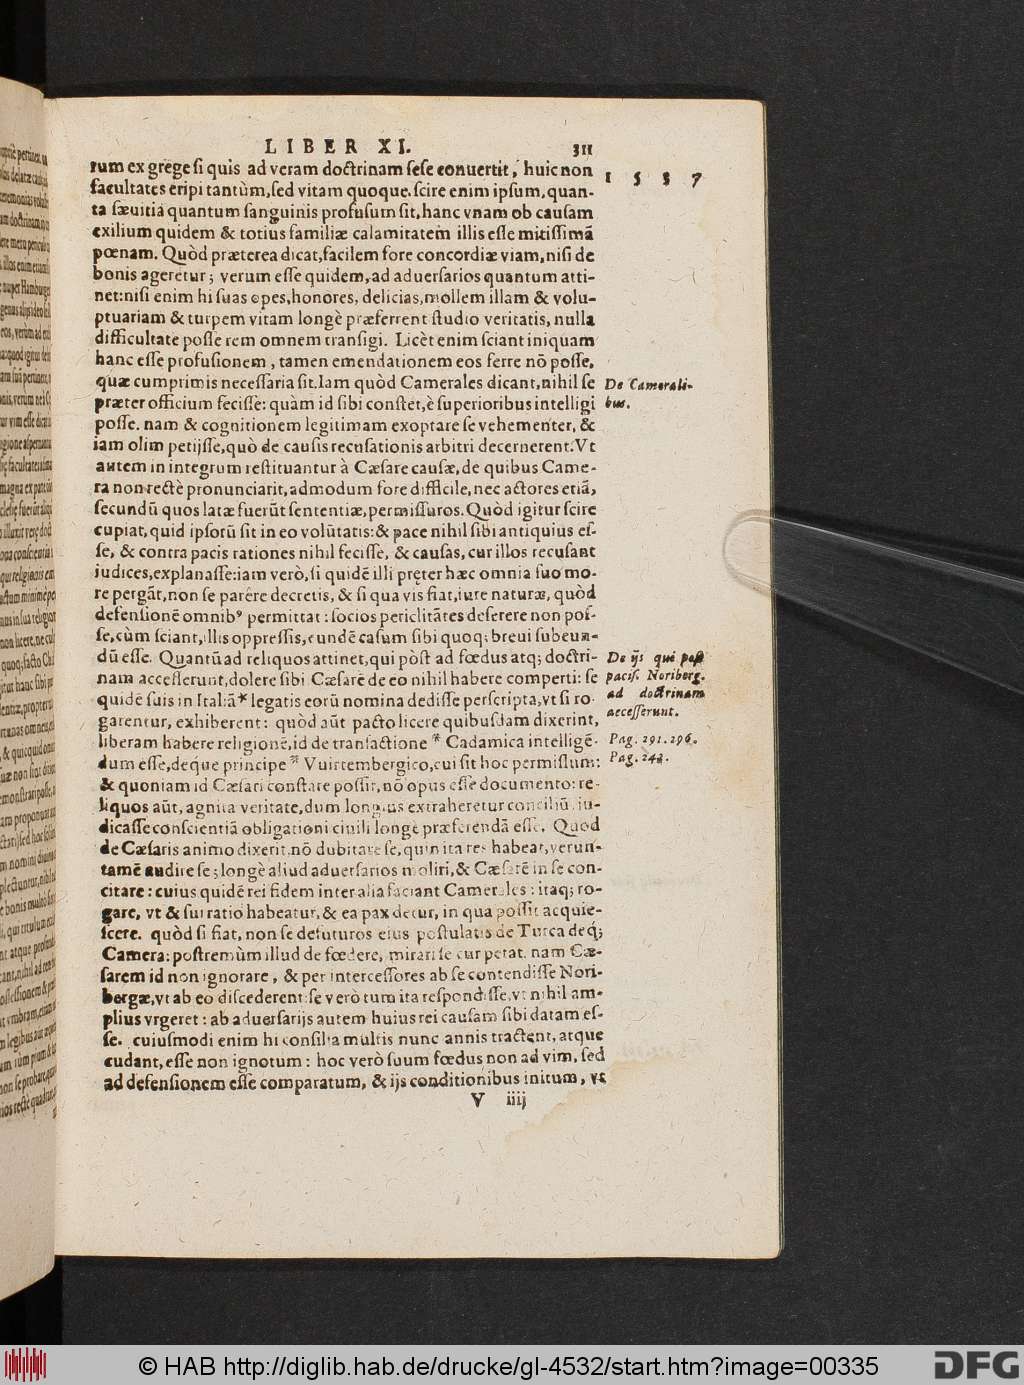 LIBER XI. 311
1 5 3 7
rum ex grege si quis ad veram doctrinam sese conuertit, huic non
facultates eripi tantùm, sed vitam quoque. scire enim ipsum, quan-
ta sæuitia quantum sanguinis profusum sit, hanc vnam ob causam
exilium quidem & totius familiæ calamitatem illis esse mitissimã
pœnam. Quòd præterea dicat, facilem fore concordiæ viam, nisi de
bonis ageretur; verum esse quidem, ad aduersarios quantum atti-
net: nisi enim hi suas opes, honores, delicias, mollem illam & volu-
ptuariam & turpem vitam longè præferrent studio veritatis, nulla
difficultate posse rem omnem transigi. Licèt enim sciant iniquam
hanc esse profusionem, tamen emendationem eos ferre nõ posse,
quæ cumprimis necessaria sit. Iam quòd Camerales dicant, nihil se
De Camerali-
bus.
præter officium fecisse: quàm id sibi constet, è superioribus intelligi
posse. nam & cognitionem legitimam exoptare se vehementer, &
iam olim petijsse, quò de causis recusationis arbitri decernerent. Vt
autem in integrum restituantur à Cæsare causæ, de quibus Came-
ra non rectè pronunciarit, admodum fore difficile, nec actores etiã,
secundũ quos latæ fuerũt sententiæ, permissuros. Quòd igitur scire
cupiat, quid ipsorũ sit in eo volũtatis: & pace nihil sibi antiquius es-
se, & contra pacis rationes nihil fecisse, & causas, cur illos recusant
iudices, explanasse: iam verò, si quidẽ illi pręter hæc omnia suo mo-
re pergãt, non se parêre decretis, & si qua vis fiat, iure naturæ, quòd
defensionẽ omnibꝰ permittat: socios periclitãtes deserere non pos-
se, cùm sciant, illis oppressis, eundẽ casum sibi quoq; breui subeun-
dũ esse. Quantũ ad reliquos attinet, qui pòst ad fœdus atq; doctri-
De ijs qui post
pacis. Noriberg.
ad doctrinam
accesserunt.
nam accesserunt, dolere sibi Cæsarẽ de eo nihil habere comperti: se
quidẽ suis in Italiã* legatis eorũ nomina dedisse perscripta, vt si ro-
garentur, exhiberent: quòd aũt pacto licere quibusdam dixerint,
liberam habere religionẽ, id de transactione * Cadamica intelligẽ-
Pag. 291. 296.
dum esse, deque principe * Vuirtembergico, cui sit hoc permissum:
Pag. 242.
& quoniam id Cæsari constare possit, nõ opus esse documento: re-
liquos aũt, agnita veritate, dum longius extraheretur conciliũ, iu-
dicasse conscientiã obligationi ciuili longè præferendã esse. Quod
de Cæsaris animo dixerit, nõ dubitare se, quin ita res habeat, verun-
tamẽ audire se; longè aliud aduersarios moliri, & Cæsarẽ in se con-
citare: cuius quidẽ rei fidem inter alia faciant Camerales: itaq; ro-
gare, vt & sui ratio habeatur, & ea pax detur, in qua possit acquie-
scere. quòd si fiat, non se defuturos eius postulatis de Turca deq́;
Camera: postremùm illud de fœdere, mirari se cur petat. nam Cæ-
sarem id non ignorare, & per intercessores ab se contendisse Nori-
bergæ, vt ab eo discederent: se verò tum ita respondisse, vt nihil am-
plius vrgeret: ab aduersarijs autem huius rei causam sibi datam es-
se. cuiusmodi enim hi consilia multis nunc annis tractent, atque
cudant, esse non ignotum: hoc verò suum fœdus non ad vim, sed
ad defensionem esse comparatum, & ijs conditionibus initum, vt
V iiij
© HAB http://diglib.hab.de/drucke/gl-4532/start.htm?image=00335
DFG